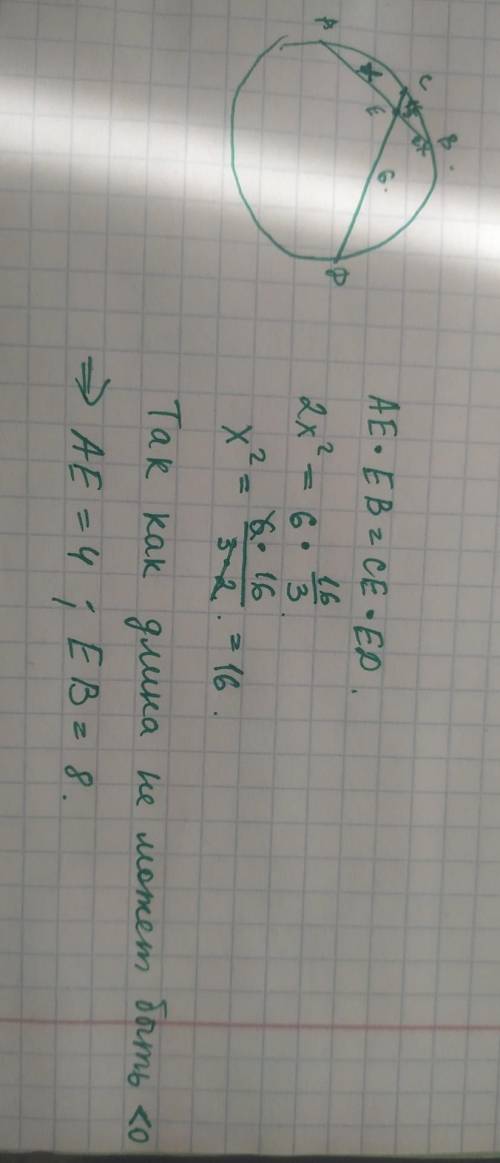 A
C
B
E
x
2x
16/3
6
D
AE · EB = CE · ED.
2x² = 6 · 16/3.
x² = 6 · 16 / 3 · 2 . = 16 .
Так как длина не может быть <0
⇒ AE = 4 ; EB = 8 .